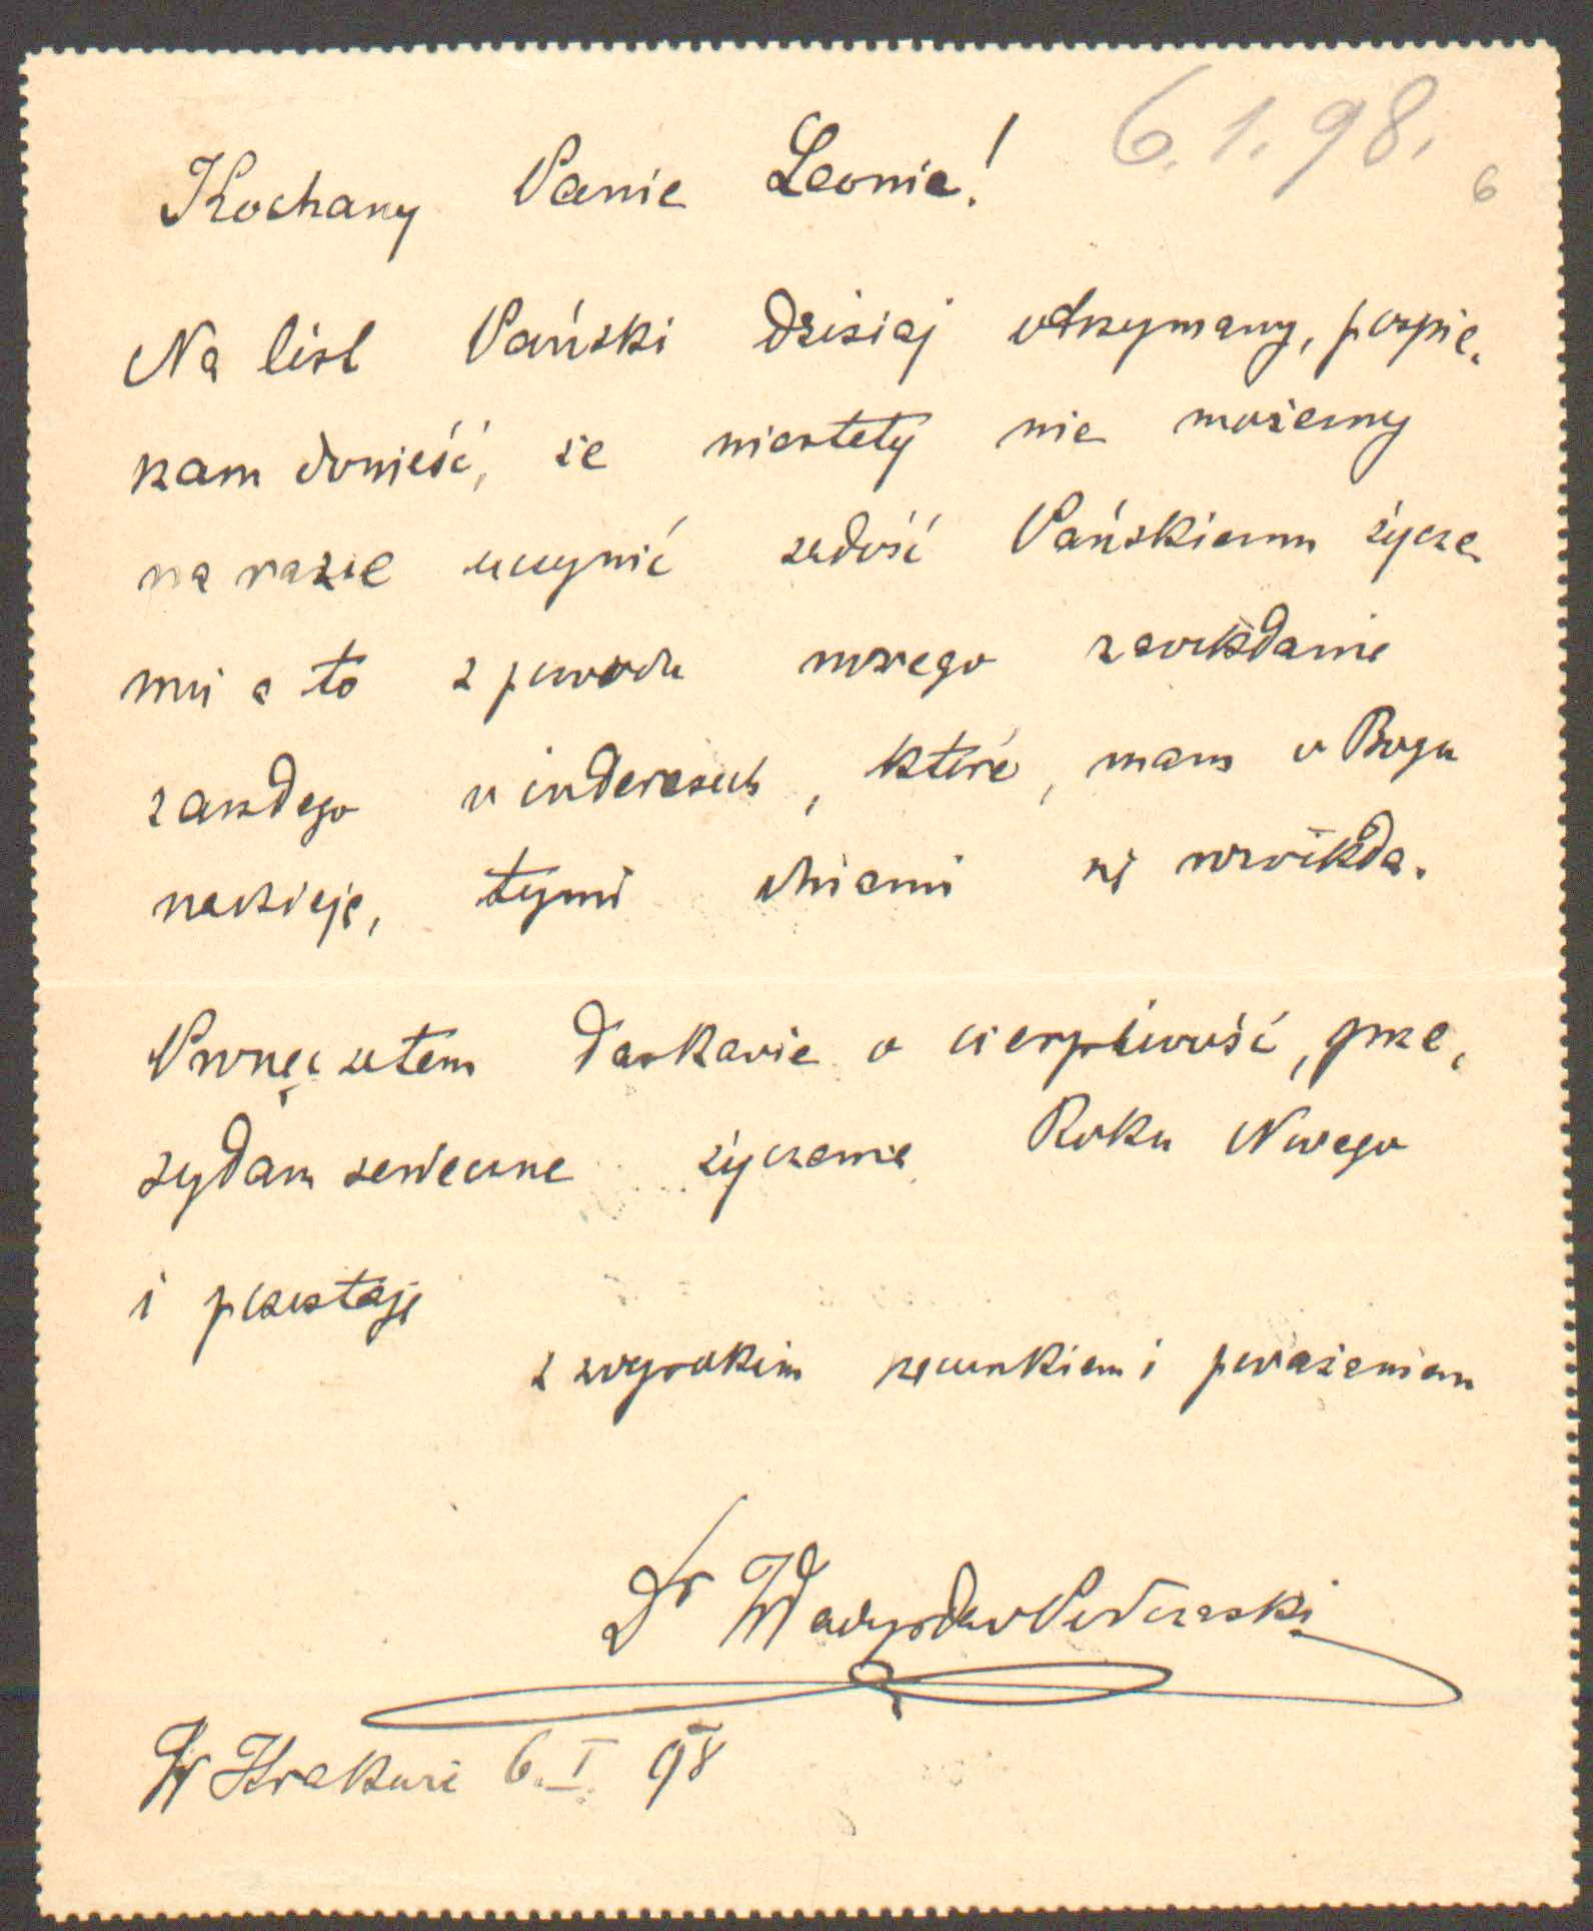 6. 1. 98.
6
Kochany Panie Leonie!
Na list Pański dzisiaj otrzymany, pospie-
szam donieść, że niestety nie możemy
na razie uczynić zadość Pańskiemu życze
niu a to z powodu mego zawikłania
zaszłego w interesach, które, mam w Bogu
nadzieję, tymi dniami się rozwikła.
Prosząc zatem łaskawie o cierpliwość, prze-
syłam serdeczne życzenia Roku Nowego
i pozostaję
z wysokim szacunkiem i poważaniem
Dr Władysław
W Krakowie 6. I. 98